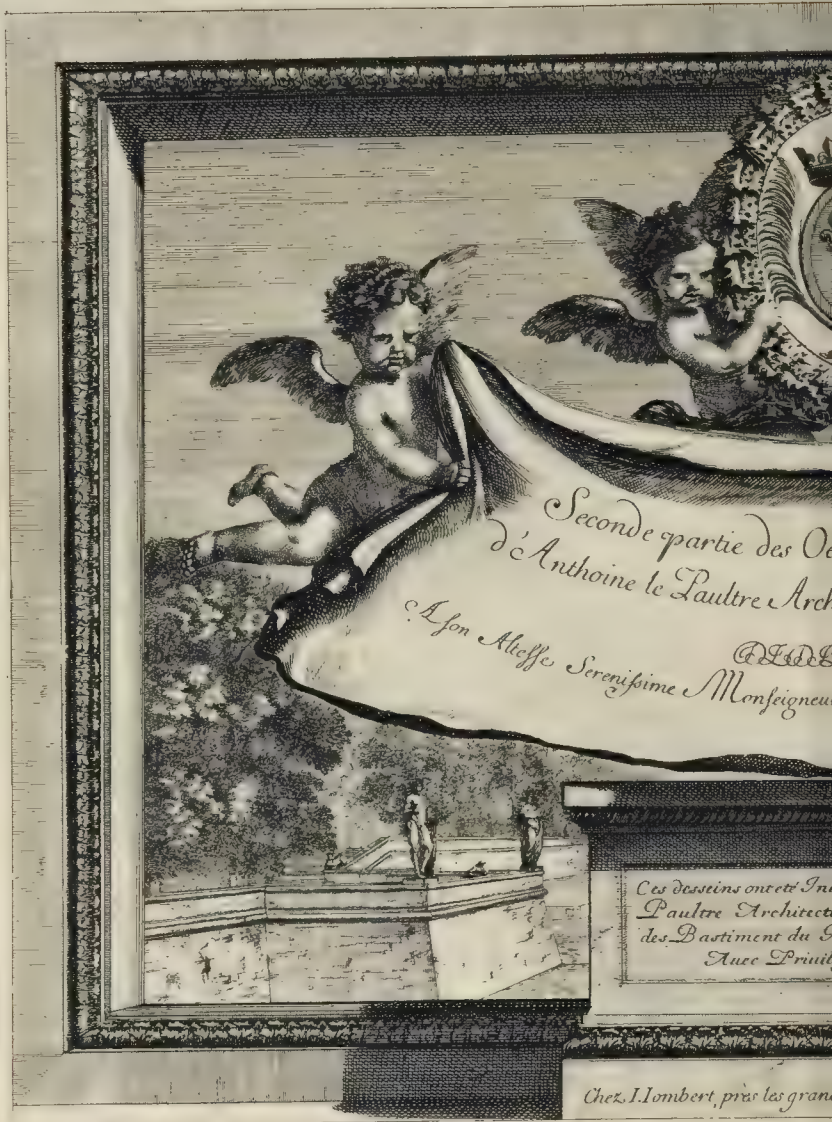 Seconde partie des Oe
d'Anthoine le Paultre Arch
A son Altesse Serenissime Monseigneu
Ces desseins ont eté Inu
Paultre Architect
des Bastiment du
Auec Priuil
Chez I. Iombert, près les gran